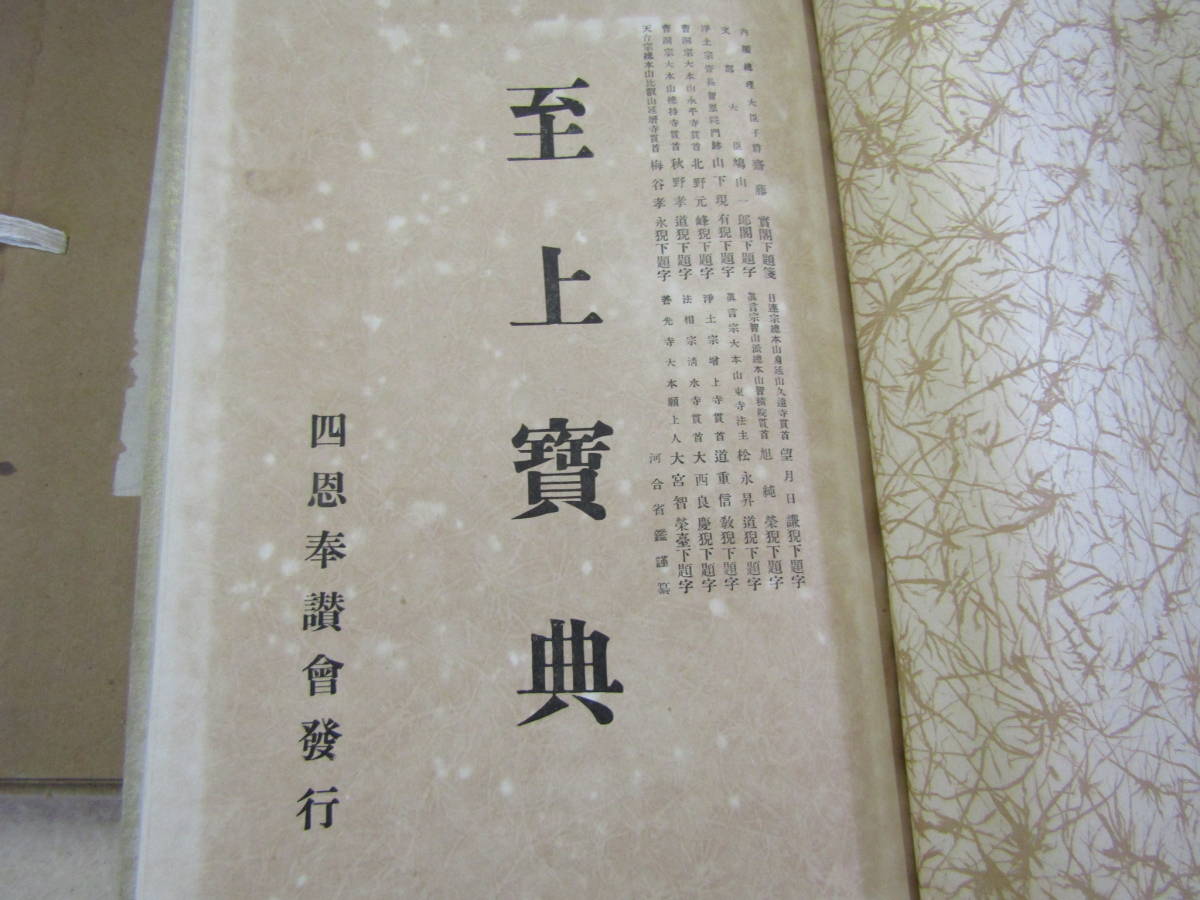 內閣總理大臣子爵齋藤實閣下題箋
文部大臣鳩山一郎閣下題字
淨土宗管長智恩院門跡山下現有猊下題字
曹洞宗大本山永平寺貫首北野元峰猊下題字
曹洞宗大本山總持寺貫首秋野孝道猊下題字
天台宗總本山比叡山延曆寺貫首梅谷孝永猊下題字
日蓮宗總本山身延山久遠寺貫首望月日謙猊下題字
眞言宗智山派總本山智積院貫首旭純榮猊下題字
眞言宗大本山東寺法主松永昇道猊下題字
淨土宗增上寺貫首道重信敎猊下題字
法相宗淸水寺貫首大西良慶猊下題字
善光寺大本願上人大宮智榮臺下題字
河合省鑑謹
至上寶典
四恩奉讃會發行